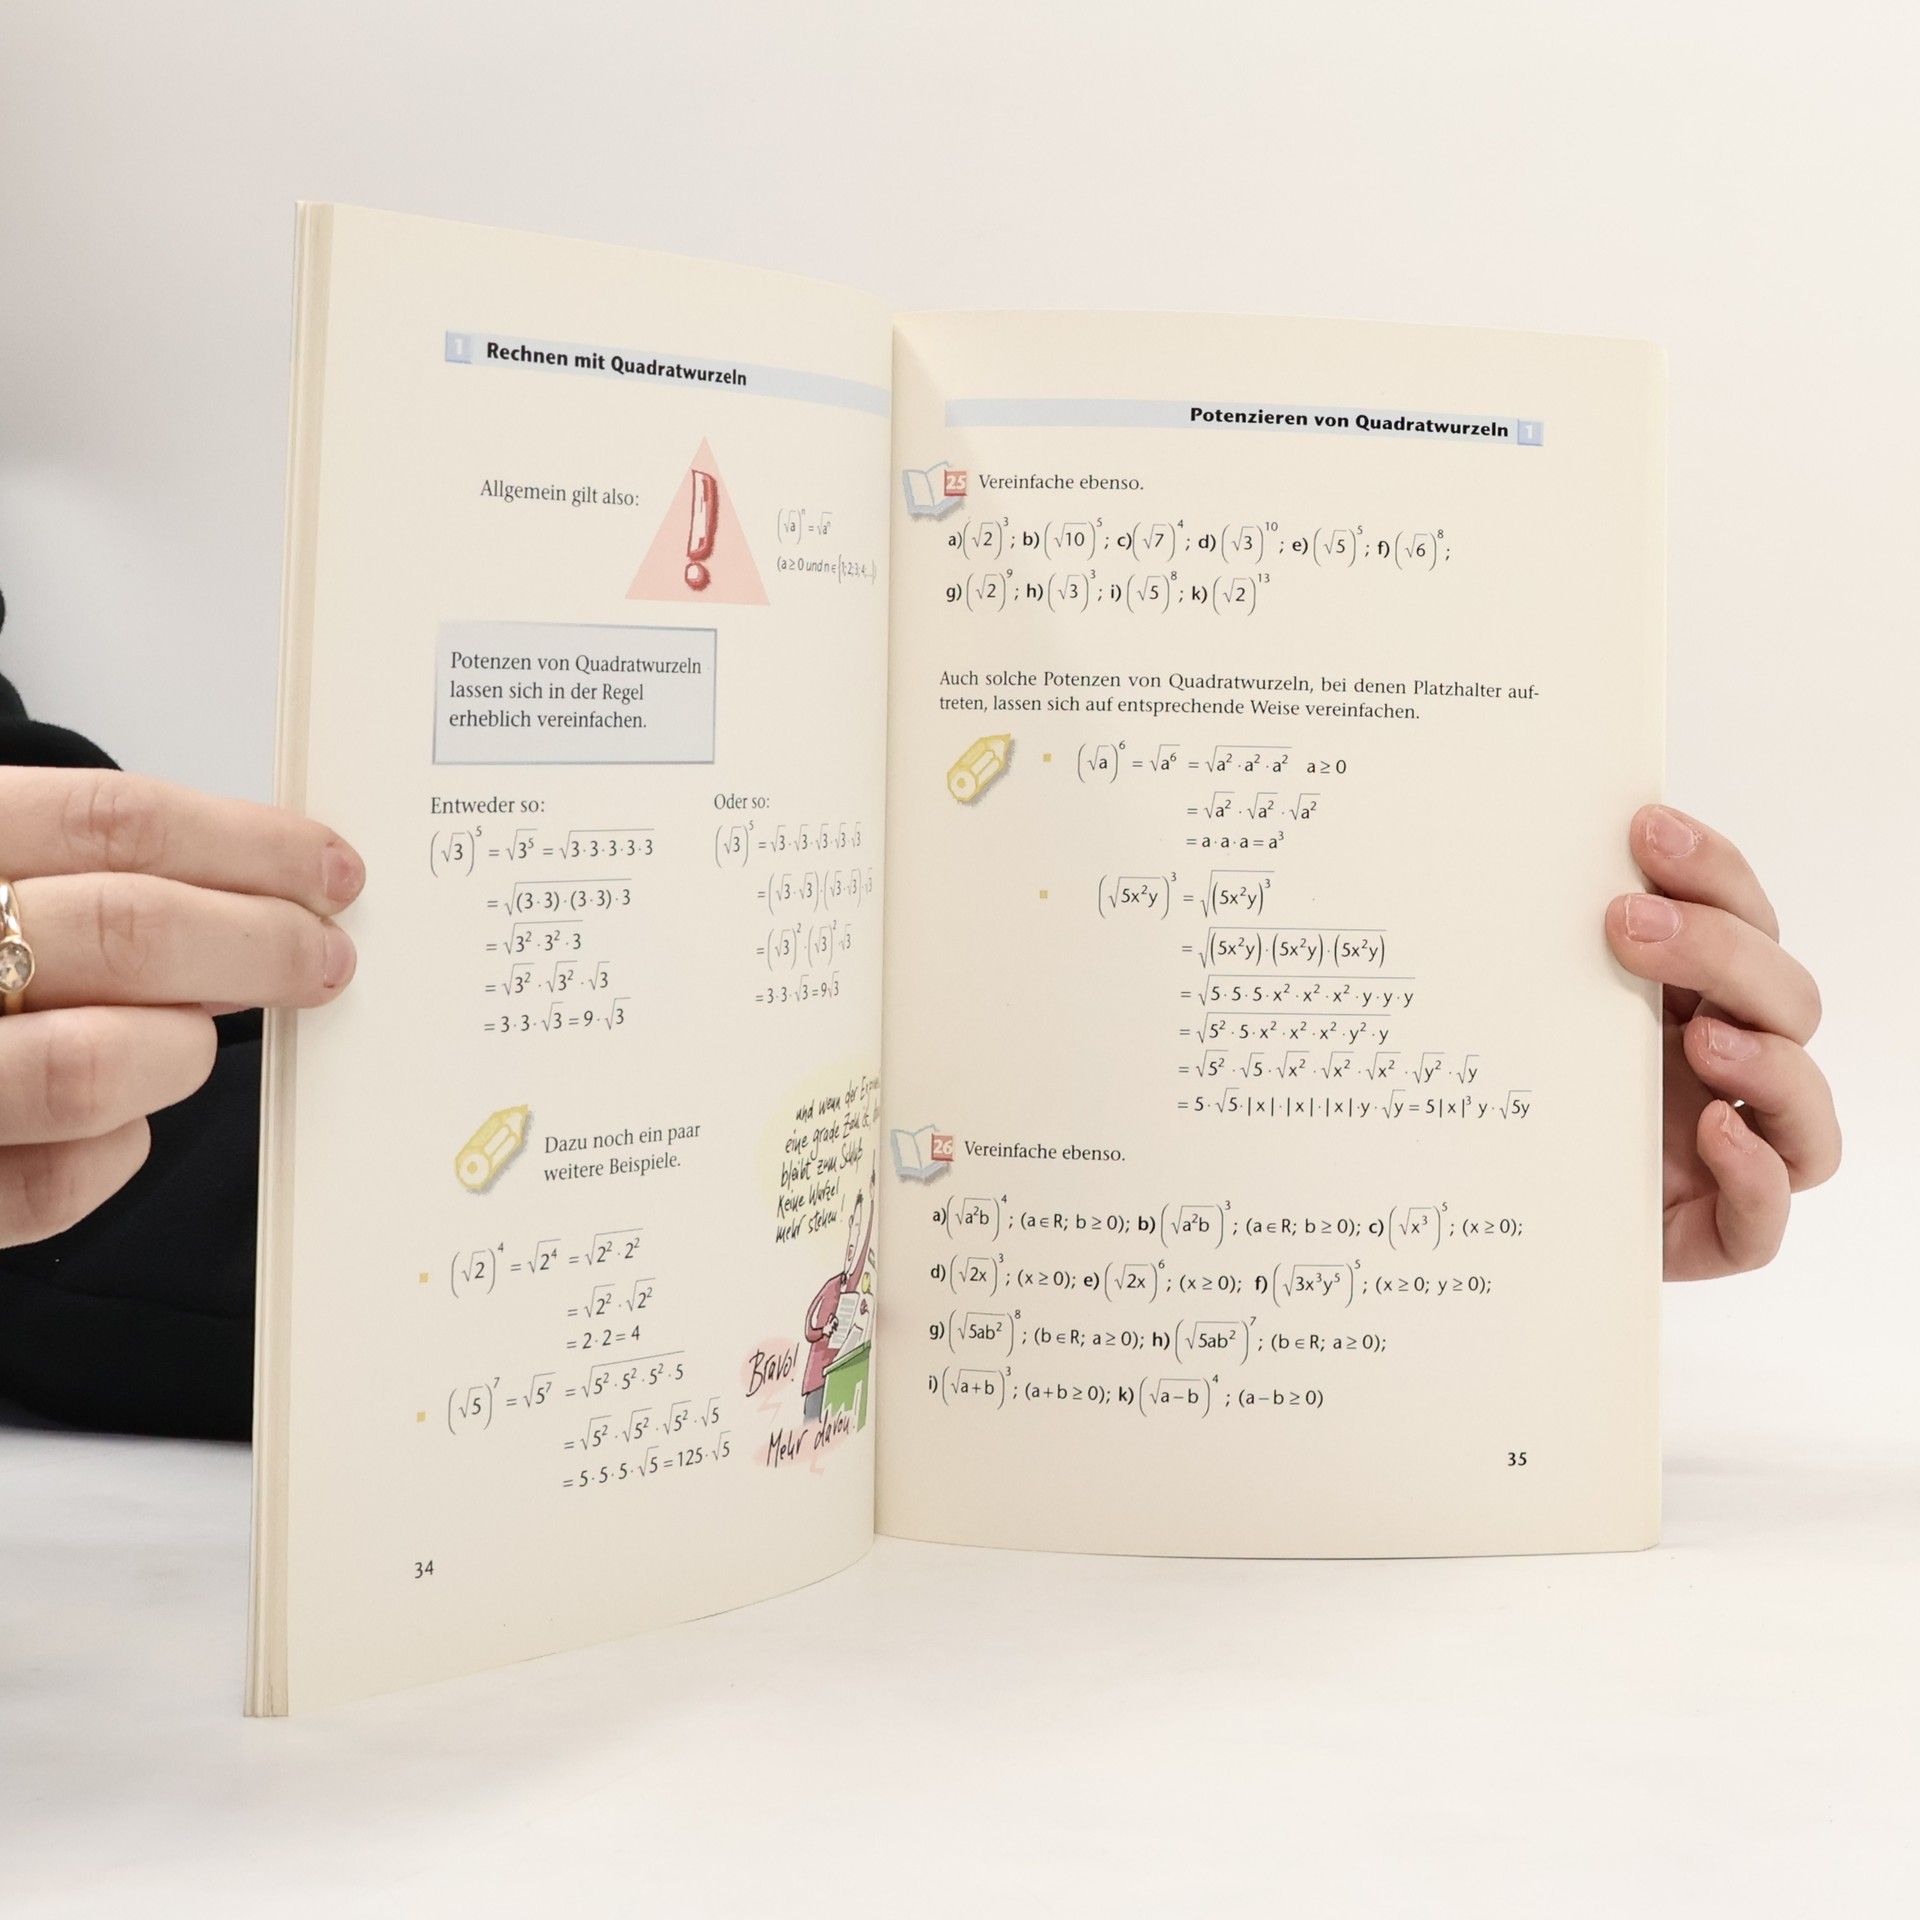 1 Rechnen mit Quadratwurzeln
Allgemein gilt also:
(√a)ⁿ = √aⁿ
(a ≥ 0 und n ∈ {1; 2; 3; 4; ...})
Potenzen von Quadratwurzeln
lassen sich in der Regel
erheblich vereinfachen.
Entweder so:
(√3)⁵ = √(3⁵) = √(3·3·3·3·3)
= √((3·3)·(3·3)·3)
= √(3²·3²·3)
= √(3²)·√(3²)·√3
= 3·3·√3 = 9·√3
Oder so:
(√3)⁵ = √3·√3·√3·√3·√3
= (√3·√3)·(√3·√3)·√3
= (√3)²·(√3)²·√3
= 3·3·√3 = 9√3
Dazu noch ein paar
weitere Beispiele.
und wenn der
eine grade Zahl ist,
bleibt zum Schluß
keine Wurzel
mehr stehen!
(√2)⁴ = √(2⁴) = √(2²·2²)
= √(2²)·√(2²)
= 2·2 = 4
(√5)⁷ = √(5⁷) = √(5²·5²·5²·5)
= √(5²)·√(5²)·√(5²)·√5
= 5·5·5·√5 = 125·√5
Bravo!
Mehr davon!
34
Potenzieren von Quadratwurzeln 1
25 Vereinfache ebenso.
a) (√2)³; b) (√10)⁵; c) (√7)⁴; d) (√3)¹⁰; e) (√5)⁵; f) (√6)⁸;
g) (√2)⁹; h) (√3)³; i) (√5)⁸; k) (√2)¹³
Auch solche Potenzen von Quadratwurzeln, bei denen Platzhalter auf-
treten, lassen sich auf entsprechende Weise vereinfachen.
(√a)⁶ = √(a⁶) = √(a²·a²·a²) a ≥ 0
= √(a²)·√(a²)·√(a²)
= a·a·a = a³
(√(5x²y))³ = √((5x²y)³)
= √((5x²y)·(5x²y)·(5x²y))
= √(5·5·5·x²·x²·x²·y·y·y)
= √(5²·5·x²·x²·x²·y²·y)
= √(5²)·√5·√(x²)·√(x²)·√(x²)·√(y²)·√y
= 5·√5·|x|·|x|·|x|·y·√y = 5|x|³ y·√(5y)
26 Vereinfache ebenso.
a) (√(a²b))⁴; (a ∈ R; b ≥ 0); b) (√(a²b))³; (a ∈ R; b ≥ 0); c) (√(x³))⁵; (x ≥ 0);
d) (√(2x))³; (x ≥ 0); e) (√(2x))⁶; (x ≥ 0); f) (√(3x³y⁵))⁵; (x ≥ 0; y ≥ 0);
g) (√(5ab²))⁸; (b ∈ R; a ≥ 0); h) (√(5ab²))⁷; (b ∈ R; a ≥ 0);
i) (√(a+b))³; (a+b ≥ 0); k) (√(a−b))⁴; (a−b ≥ 0)
35